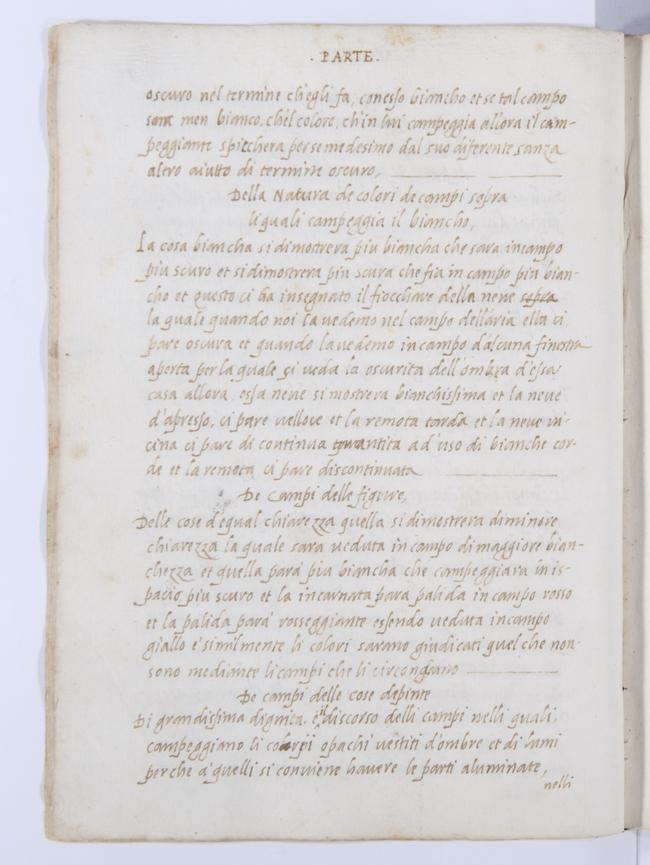 . PARTE .
oscuro nel termine ch'egli fa, con esso biancho et se tal campo
sara men bianco, ch'el colore, ch'in lui campeggia allora il cam-
peggiante spicchera per se medesimo dal suo diferente sanza
altro aiutto di termine oscuro,
Della Natura de colori de campi sopra
li quali campeggia il biancho,
La cosa biancha si dimostrera piu biancha che sara in campo
piu scuro et si dimostrera piu scura che fia in campo piu bian-
cho et questo ci ha insegnato il fiocchare della neve sopra
la quale quando noi la vedemo nel campo dell'aria ella ci
pare oscura et quando la vedemo in campo d'alcuna finostra
aperta per la quale si veda la oscurita dell'ombra d'essa
casa allora essa neve si mostrera bianchissima et la neve
d'apresso, ci pare velloce et la remota tarda et la neve vi-
cina ci pare di continua quantita ad uso di bianche cor-
de et la remota ci pare discontinuata
De Campi delle figure,
Delle cose d'egual chiarezza quella si dimostrera di minore
chiarezza la quale sara veduta in campo di maggiore bian-
chezza et quella para piu biancha che campeggiara in is-
pacio piu scuro et la incarnata para palida in campo rosso
et la palida para' rosseggiante essendo veduta in campo
giallo e similmente li colori sarano giudicati quel che non
sono mediante li campi che li circongiano
De campi delle cose depinte
Di grandissima dignita. è il discorso delli campi nelli quali,
campeggiano li corpi opachi vestiti d'ombre et di lumi
perche a quelli si conviene havere le parti aluminate,
nelli